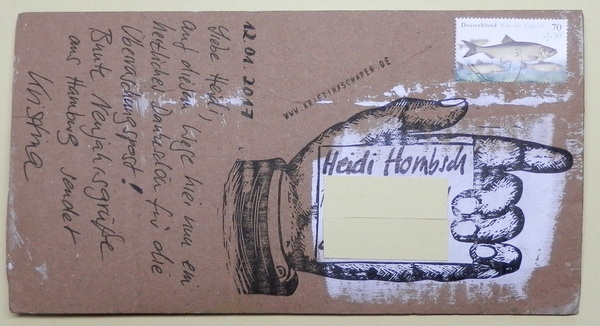 12.01.2017
Liebe Heidi,
auf diesem Wege hier nun ein
herzliches Dankeschön für die
Überraschungspost!
Bunte Neujahrsgrüße
aus Hamburg sendet
Kristina
WWW.KRISTINASCHAPER.DE
Deutschland
70
Heidi Hombsch